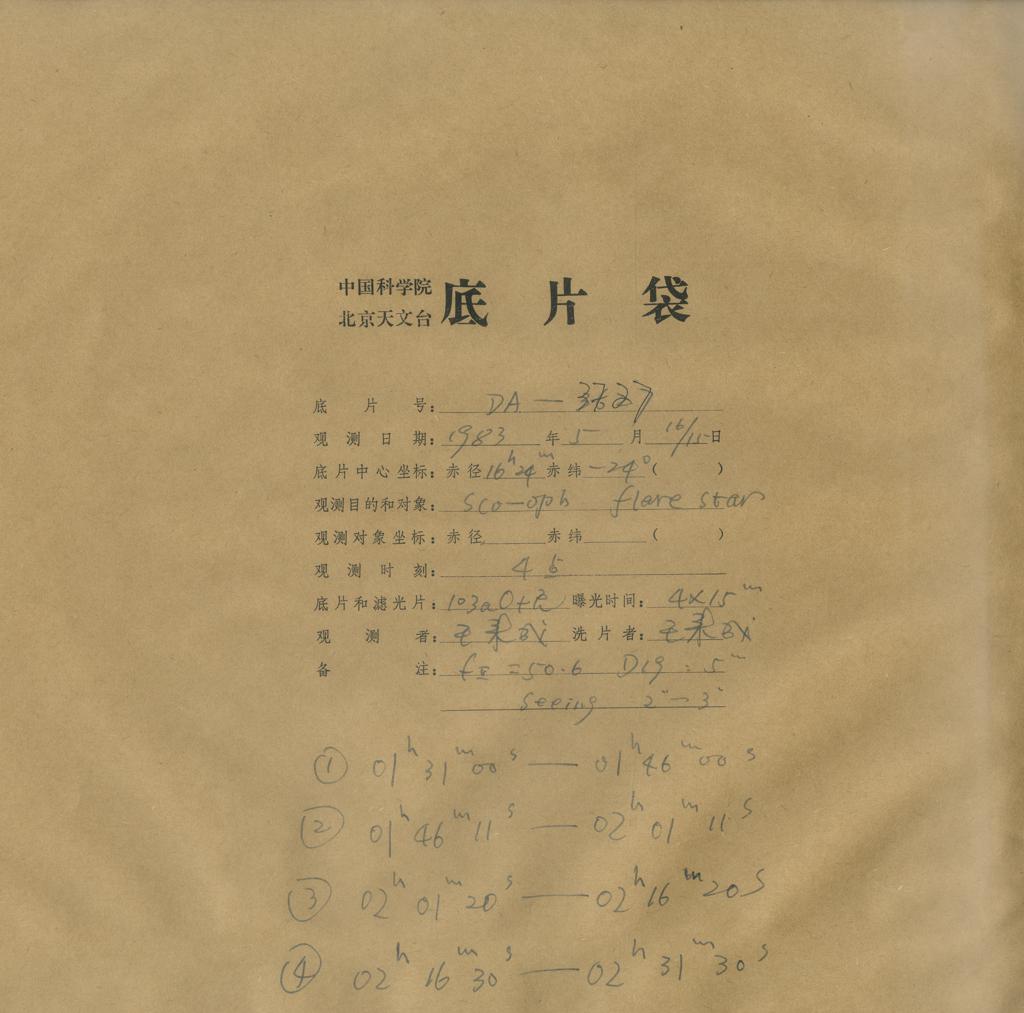 中国科学院
北京天文台 底片袋
底片号: DA —
观测日期: 1983 年 5 月 16/15 日
底片中心坐标: 赤径 16h 24m 赤纬 -24° ( )
观测目的和对象: Sco-oph flare star
观测对象坐标: 赤径 赤纬 ( )
观测时刻: 4
底片和滤光片: 103aO+ 曝光时间: 4×15m
观测者: 洗片者:
备注: = 50.6 D19: 5m
Seeing 2" — 3"
① 01h 31m 00s — 01h 46m 00s
② 01h 46m 11s — 02h 01m 11s
③ 02h 01m 20s — 02h 16m 20s
④ 02h 16m 30s — 02h 31m 30s